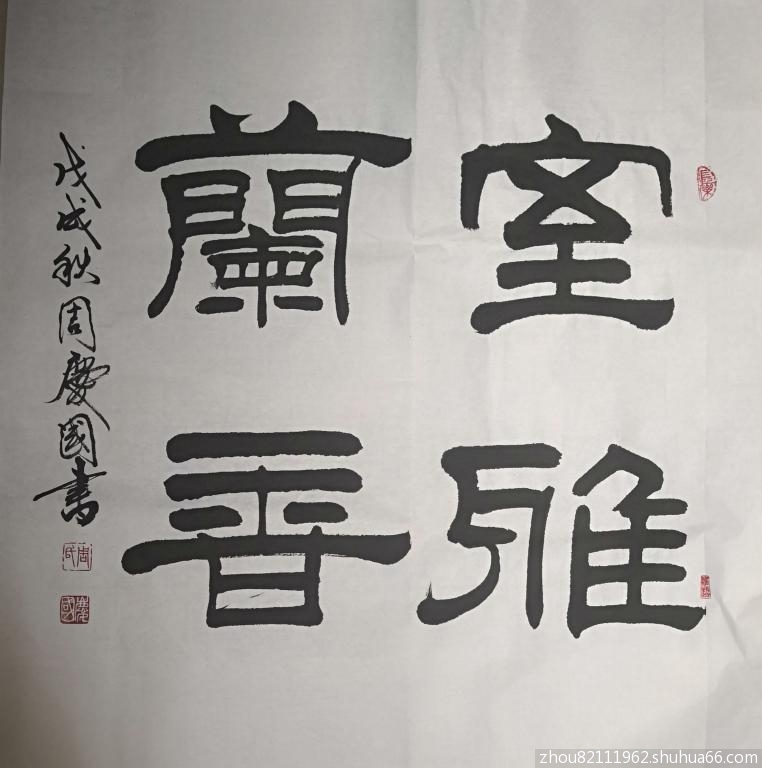 室雅
蘭香
戊戌秋周慶國書
周氏
慶國
zhou82111962.shuhua66.com